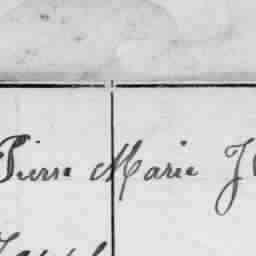 Pierre Marie J